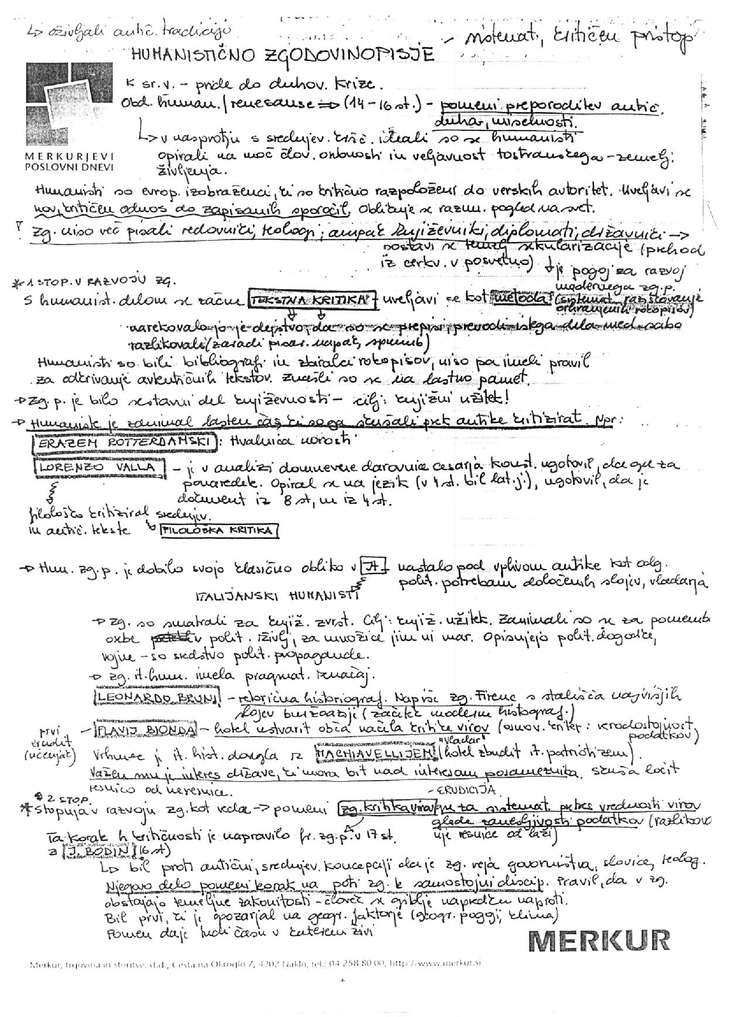 ↳ oživljali antič. tradicijo
- sistemat., kritičen pristop
HUMANISTIČNO ZGODOVINOPISJE
K sr.v. - pride do duhov. krize.
Obd. human./renesanse ⇒ (14-16 st.) - pomeni preporoditev antič.
duha, miselnosti.
↳ v nasprotju s srednjev. kršč. ideali so se humanisti
opirali na moč člov. osebnosti in veljavnost tostranskega - zemelj.
življenja.
MERKURJEVI
POSLOVNI DNEVI
Humanisti so evrop. izobraženci, ki so kritično razpoloženi do verskih avtoritet. Uveljavi se
nov, kritičen odnos do zapisanih sporočil, oblikuje se razum. pogled na svet.
! zg. niso več pisali redovniki, teologi; ampak književniki, diplomati, državniki →
postavi se temelj sekularizacije (prehod
iz cerkv. v posvetno) ↓ je pogoj za razvoj
modernega zg.p.
* 1 STOP. V RAZVOJU ZG.
S humanist. delom se začne TEKSTNA KRITIKA - uveljavi se kot metoda (sistemat. raziskovanje
ohranjenih rokopisov)
narekovalo jo je dejstvo, da so se prepisi, prevodi istega dela med sabo
razlikovali (zaradi pisar. napak, sprememb)
Humanisti so bili bibliografi in zbiralci rokopisov, niso pa imeli pravil
za odkrivanje avtentičnih tekstov. Zanašli so se na lastno pamet.
→ zg.p. je bilo sestavni del književnosti - cilj: knjižni užitek!
→ Humaniste je zanimal lasten čas, ki so ga skušali prek antike kritizirat. Npr:
ERAZEM ROTTERDAMSKI: Hvalnica norosti
LORENZO VALLA - je v analizi domnevne darovnice cesarja Konst. ugotovil, da gre za
ponaredek. Opiral se na jezik (v 4 st. bil lat.j.), ugotovil, da je
dokument iz 8 st, ne iz 4 st.
filološko kritiziral srednjev.
in antič. tekste ↳ FILOLOŠKA KRITIKA
→ Hum. zg.p. je dobilo svojo klasično obliko v IT. nastalo pod vplivom antike kot odg.
polit. potrebam določenih slojev, vladanja
ITALIJANSKI HUMANISTI
→ zg. so smatrali za knjiž. zvrst. Cilj: knjiž. užitek. Zanimali so se za pomembn
osebe v polit. življ, za množice jim ni mar. Opisujejo polit. dogodke,
vojne - so sredstvo polit. propagande.
→ zg. it. hum. imela pragmat. značaj.
LEONARDO BRUNI - retorična historiograf. Napiše zg. Firenc s stališča najvišjih
slojev buržoazije (začetek moderne histograf.)
prvi
erudit
(učenjak)
- FLAVIJ BIONDO - hotel ustvarit obča načela kritike virov (osnov. kriter.: verodostojnost
podatkov)
"Vladar"
Vrhunec j. it. hist. dosegla iz MACHIAVELLIJEM (hotel zbudit it. patriotizem)
Važen mu je interes države, ki mora bit nad interesom posameznika, skuša ločit
resnico od neresnice.
- ERUDICIJA,
* 2 STOP.
Stopnja v razvoju zg. kot veda → pomeni zg. kritika virov in za sistemat. preizk. vrednosti virov
glede zanesljivosti podatkov (razlikova
nje resnice od laži)
Ta korak h kritičnosti je napravilo fr. zg.p. v 17 st.
z J. BODIN (16 st)
↳ bil proti antični, srednjev. koncepciji da je zg. veja govorništva, slovice, teolog.
Njegovo delo pomeni korak na poti zg. k samostojni discip. Pravil, da v zg.
obstajajo temeljne zakonitosti - človek se giblje naprej k naprotn.
Bil prvi, ki je opozarjal na geogr. faktorje (geogr. pogoji, klima)
Pomen daje tudi času v katerem živi
MERKUR
Merkur, trgovina in storitve, d.d., Cesta na Okroglo 7, 4202 Naklo, tel.: 04 258 80 00, http://www.merkur.si